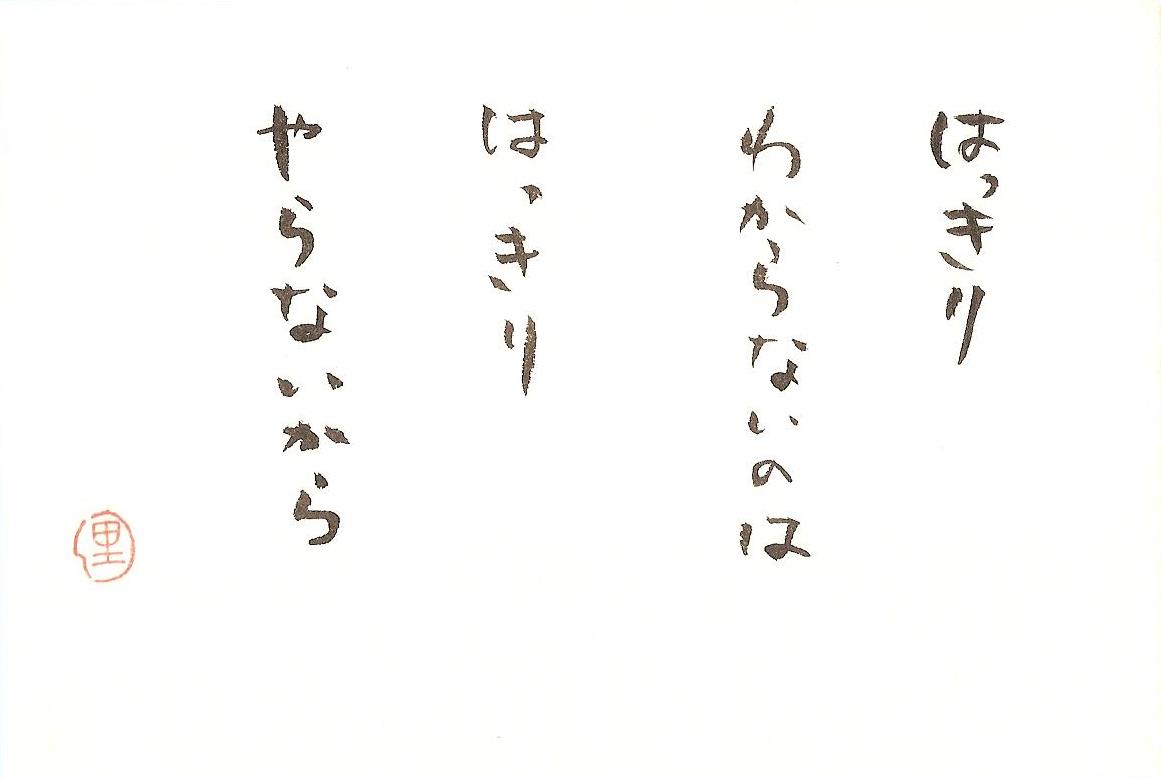 はっきり
わからないのは
はっきり
やらないから
里